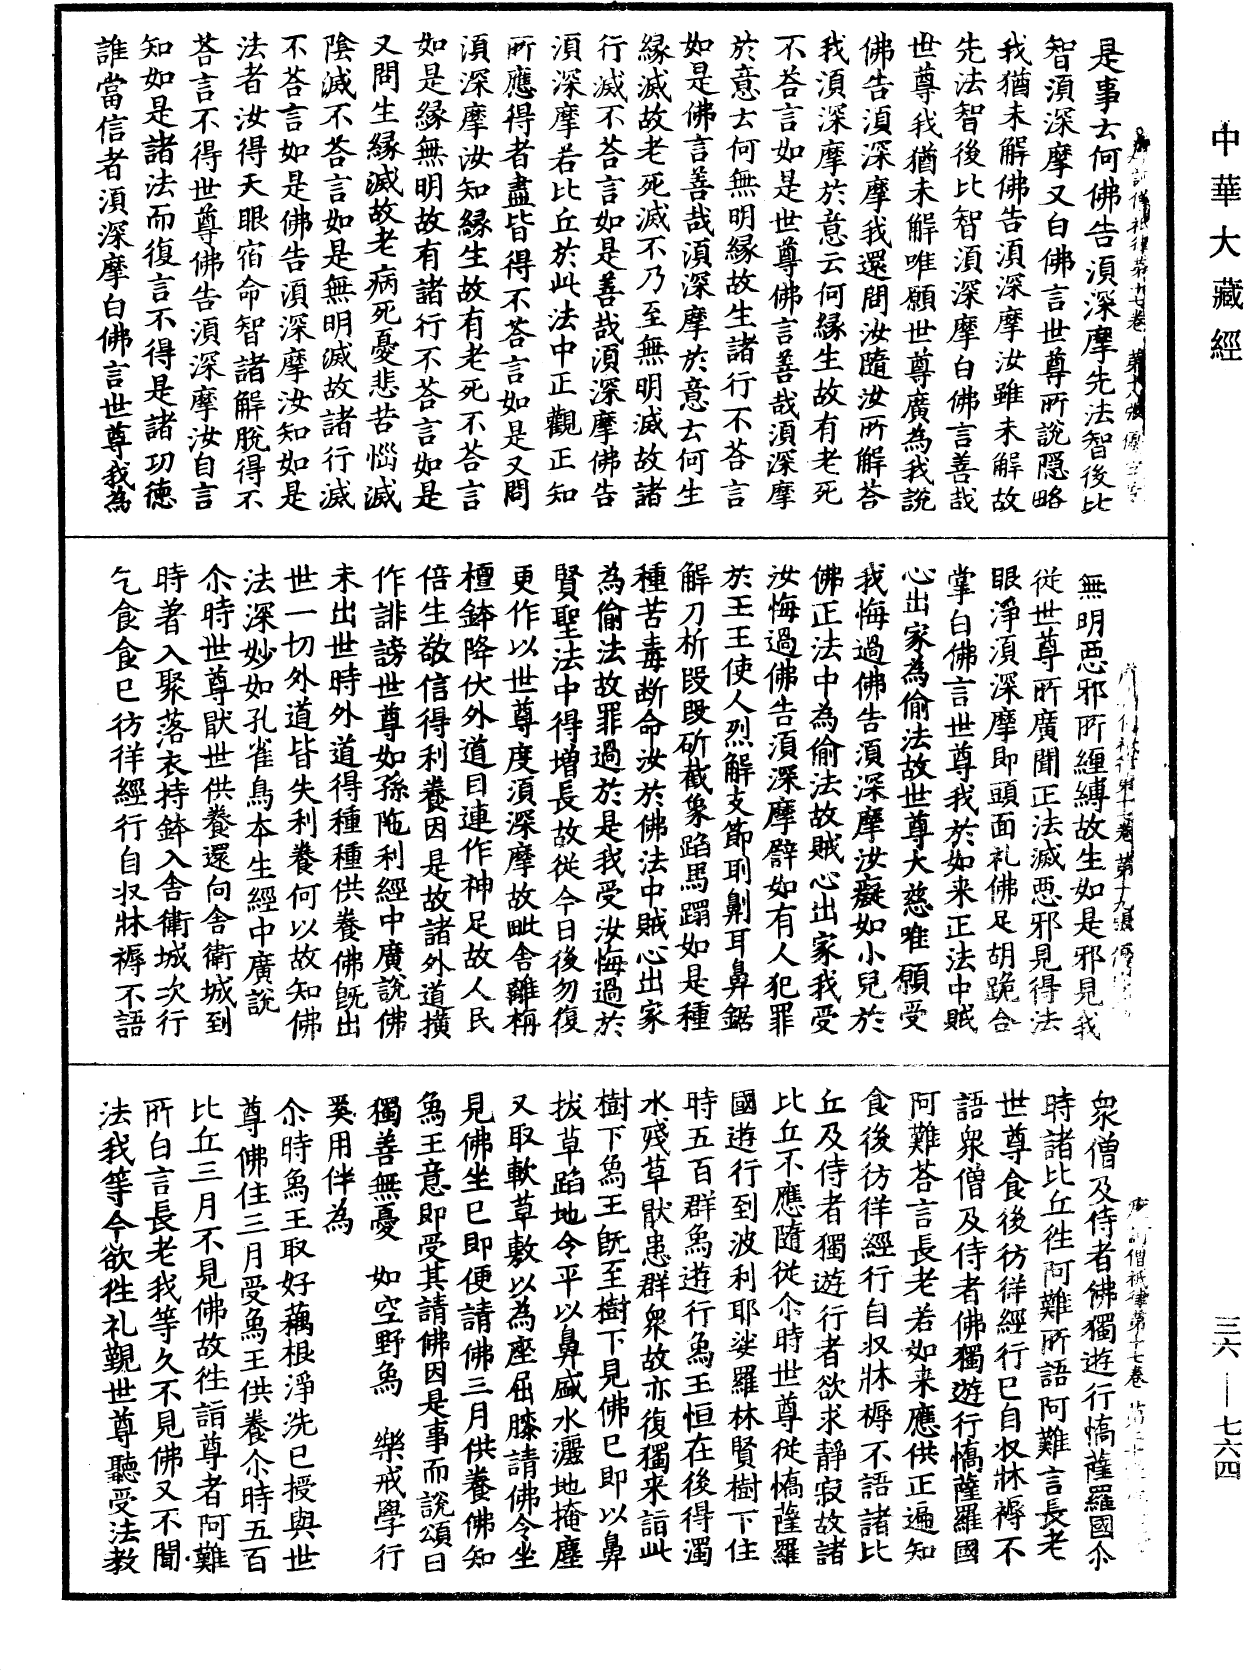 中華大藏經
是事云何佛告須深摩先法智後比
智須深摩又白佛言世尊所說隱略
我猶未解佛告須深摩汝雖未解故
先法智後比智須深摩白佛言善哉
世尊我猶未解唯願世尊廣為我說
佛告須深摩我還問汝隨汝所解荅
我須深摩於意云何緣生故有老死
不荅言如是世尊佛言善哉須深摩
於意云何無明緣故生諸行不荅言
如是佛言善哉須深摩於意云何生
緣滅故老死滅不乃至無明滅故諸
行滅不荅言如是善哉須深摩佛告
須深摩若比丘於此法中正觀正知
所應得者盡皆得不荅言如是又問
須深摩汝知緣生故有老死不荅言
如是緣無明故有諸行不荅言如是
又問生緣滅故老病死憂悲苦惱滅
陰滅不荅言如是無明滅故諸行滅
不荅言如是佛告須深摩汝知如是
法者汝得天眼宿命智諸解脫得不
荅言不得世尊佛告須深摩汝自言
知如是諸法而復言不得是諸功德
誰當信者須深摩白佛言世尊我為
無明惡邪所纏縛故生如是邪見我
從世尊所廣聞正法滅惡邪見得法
眼淨須深摩即頭面礼佛足胡跪合
掌白佛言世尊我於如来正法中賊
心出家為偷法故世尊大慈唯願受
我悔過佛告須深摩汝癡如小兒於
佛正法中為偷法故賊心出家我受
汝悔過佛告須深摩譬如有人犯罪
於王王使人烈解支節刵劓耳鼻鋸
解刀析段段斫截象蹈馬蹋如是種
種苦毒断命汝於佛法中賊心出家
為偷法故罪過於是我受汝悔過於
賢聖法中得增長故從今日後勿復
更作以世尊度須深摩故毗舍離栴
檀鉢降伏外道目連作神足故人民
倍生敬信得利養因是故諸外道橫
作誹謗世尊如孫陁利經中廣說佛
未出世時外道得種種供養佛既出
世一切外道皆失利養何以故知佛
法深妙如孔雀鳥本生經中廣說
尒時世尊猒世供養還向舍衛城到
時著入聚落衣持鉢入舍衛城次行
乞食食已彷徉經行自収牀褥不語
衆僧及侍者佛獨遊行憍薩羅國尒
時諸比丘徃阿難所語阿難言長老
世尊食後彷徉經行已自収牀褥不
語衆僧及侍者佛獨遊行憍薩羅國
阿難荅言長老若如来應供正遍知
食後彷徉經行自収牀褥不語諸比
丘及侍者獨遊行者欲求静寂故諸
比丘不應隨從尒時世尊從憍薩羅
國遊行到波利耶娑羅林賢樹下住
時五百群烏遊行烏王恒在後得濁
水殘草猒患群衆故亦復獨来詣此
樹下烏王既至樹下見佛已即以鼻
拔草蹈地令平以鼻盛水灑地掩塵
又取軟草敷以為座屈膝請佛令坐
見佛坐已即便請佛三月供養佛知
烏王意即受其請佛因是事而說頌曰
獨善無憂　如空野烏　樂戒學行
奚用伴為
尒時烏王取好藕根淨洗已授與世
尊佛住三月受烏王供養尒時五百
比丘三月不見佛故徃詣尊者阿難
所白言長老我等久不見佛又不聞
法我等今欲徃礼覲世尊聽受法教
三六——七六四